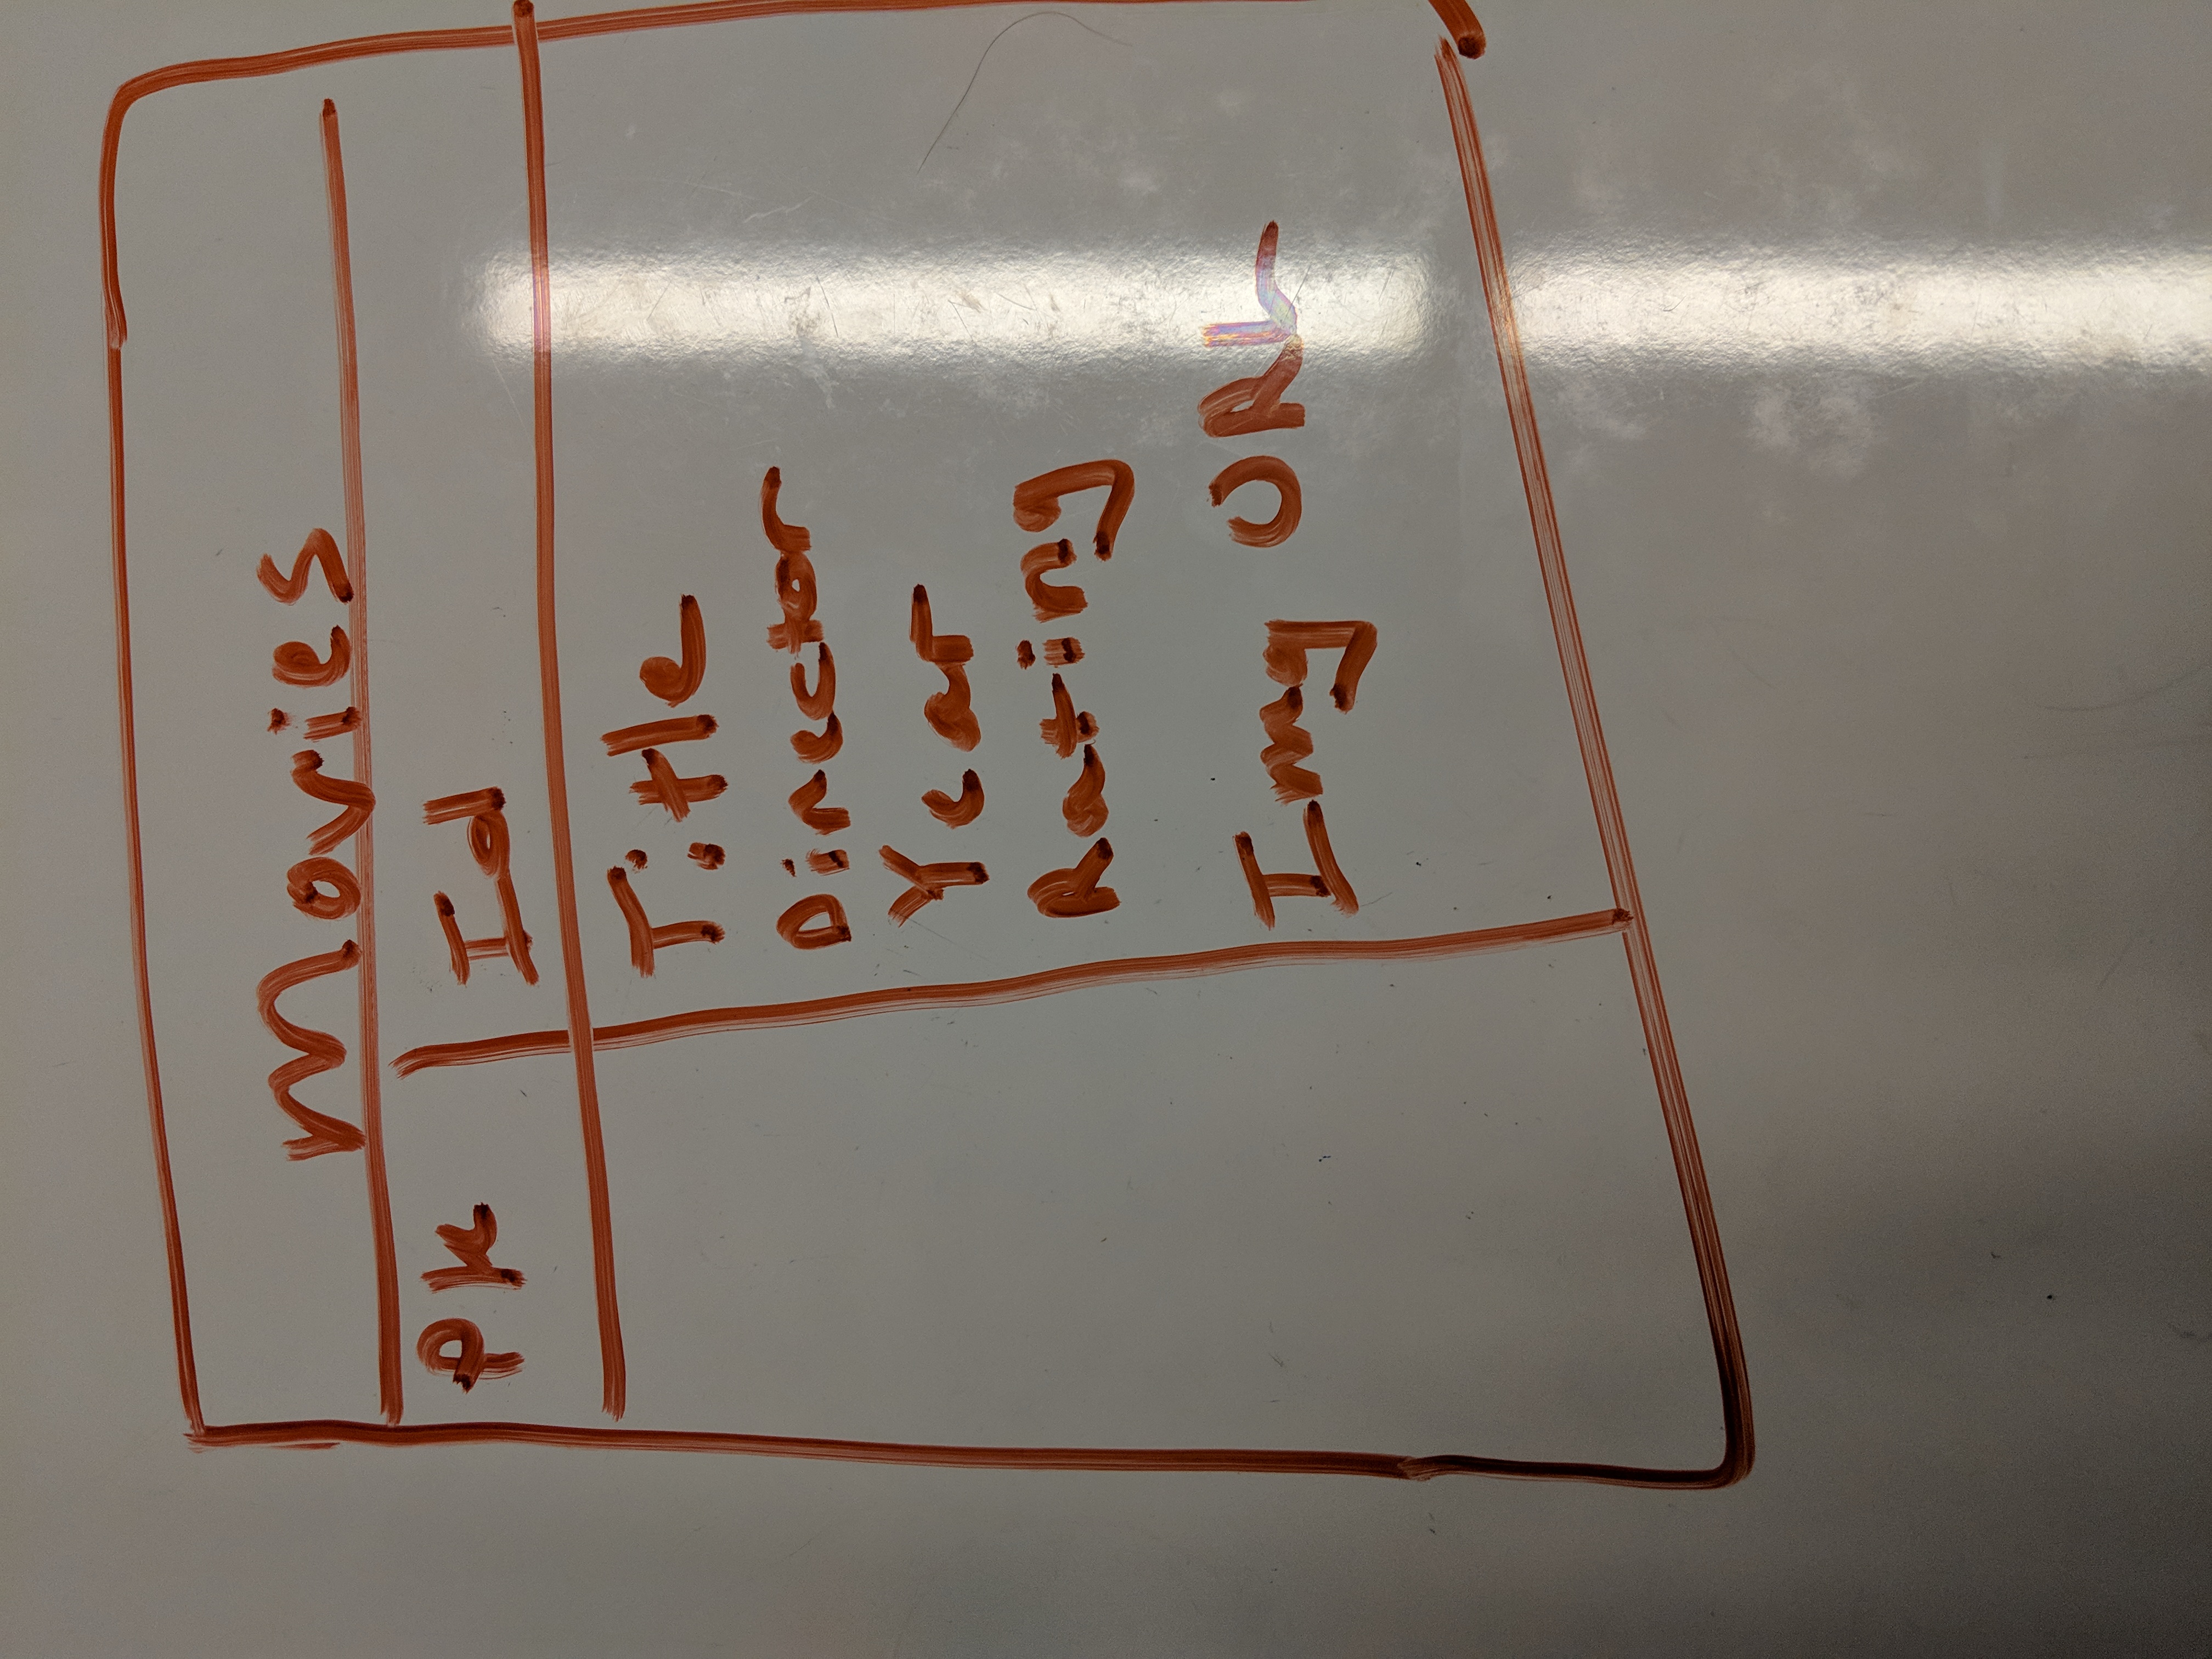 Movies
PK Id
Title
Director
Year
Rating
Img URL